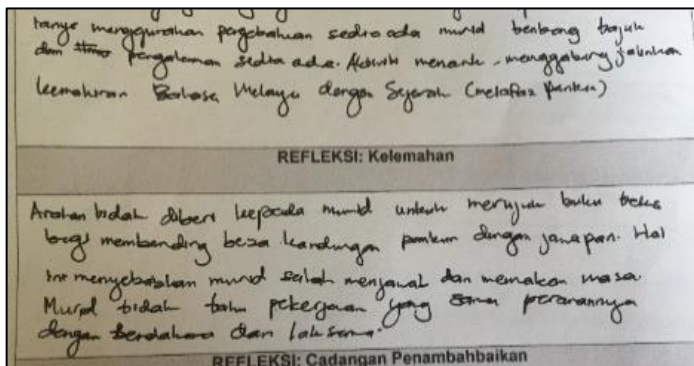 tanya menggunakan pengetahuan sedia ada murid tentang tajuk
dan pengalaman sedia ada. Aktiviti menarik, menggabung jalinkan
kemahiran Bahasa Melayu dengan Sejarah (melafaz pantun)
REFLEKSI: Kelemahan
Arahan tidak diberi kepada murid untuk merujuk buku teks
bagi membanding beza kandungan pantun dengan jawapan. Hal
ini menyebabkan murid salah menjawab dan memakan masa.
Murid tidak tahu pekerjaan yang sama peranannya
dengan bendahara dan laksamana.
REFLEKSI: Cadangan Penambahbaikan